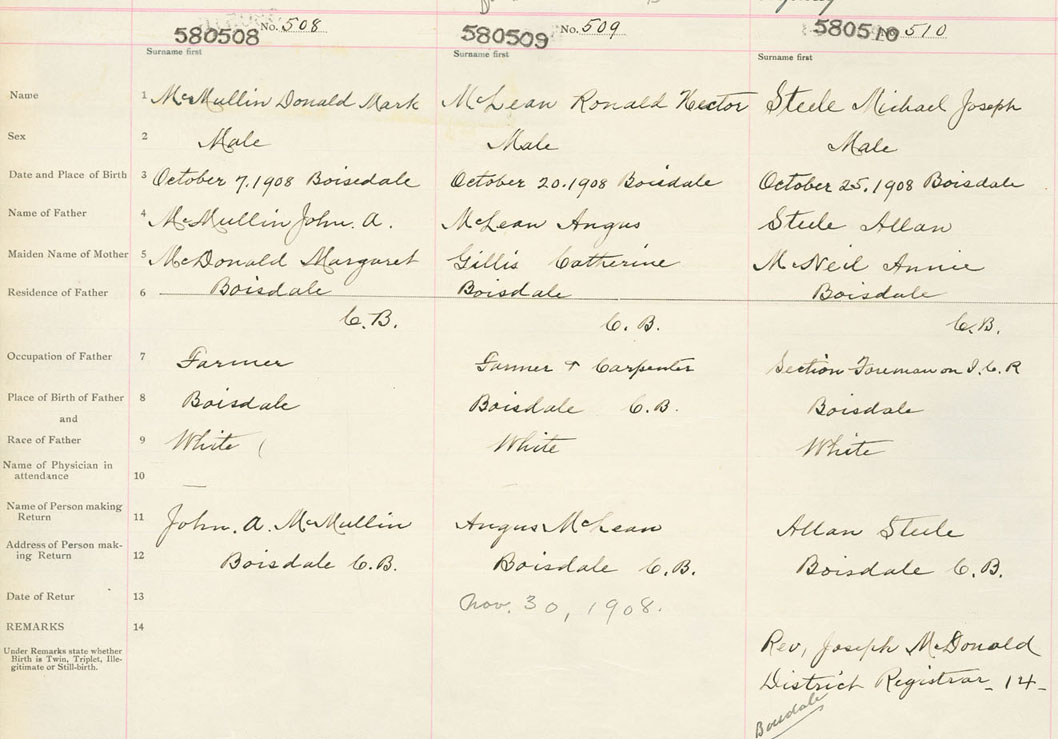 580508 No. 508
580509 No. 509
580510 No. 510
Surname first Surname first Surname first
Name 1 McMullin Donald Mark McLean Ronald Hector Steele Michael Joseph
Sex 2 Male Male Male
Date and Place of Birth 3 October 7. 1908 Boisedale October 20. 1908 Boisdale October 25, 1908 Boisdale
Name of Father 4 McMullin John. A. McLean Angus Steele Allan
Maiden Name of Mother 5 McDonald Margaret Gillis Catherine McNeil Annie
Residence of Father 6 Boisdale Boisdale Boisdale
C.B. C.B. C.B.
Occupation of Father 7 Farmer Farmer & Carpenter Section Foreman on I.C.R
Place of Birth of Father 8 Boisdale Boisdale C.B. Boisdale
and
Race of Father 9 White White White
Name of Physician in
attendance 10 —
Name of Person making
Return 11 John. A. McMullin Angus McLean Allan Steele
Address of Person mak-
ing Return 12 Boisdale C.B. Boisdale C.B. Boisdale C.B.
Date of Retur 13 Nov. 30, 1908.
REMARKS 14
Under Remarks state whether
Birth is Twin, Triplet, Ille-
gitimate or Still-birth.
Rev, Joseph McDonald
District Registrar - 14 -
Boisdale